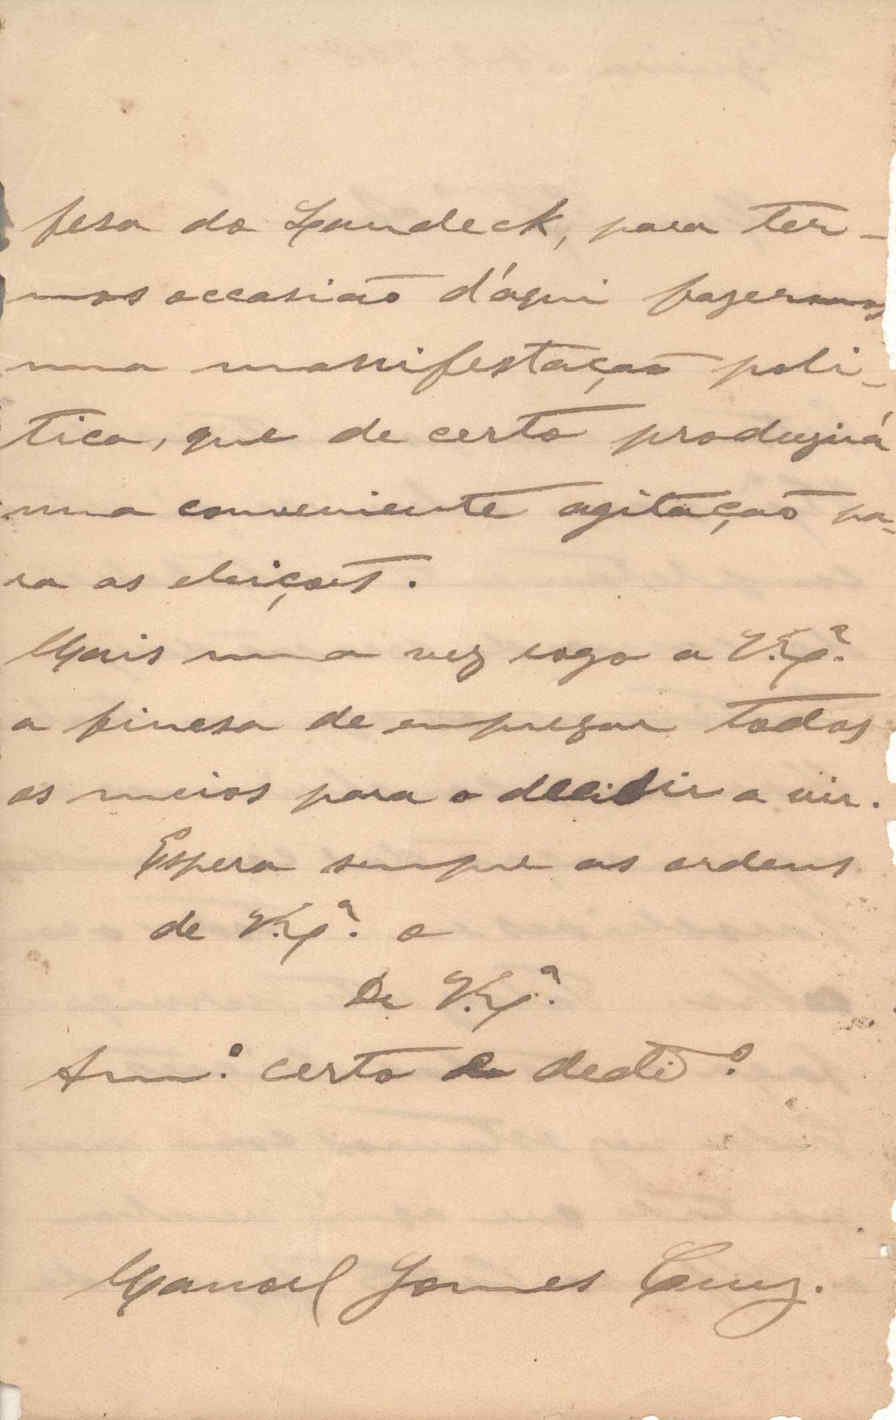 fesa do Landeck, para ter-
mos occasião d'áqui fazermos
uma manifestação poli-
tica, que de certo produzirá
uma conveniente agitação pa-
ra as eleições.
Mais uma vez rogo a V.Exª.
a finesa de empregar todos
os meios para o decidir a vir.
Espera sempre as ordens
de V.Exª. o
De V.Exª.
Amº. certo e dedº.
Manoel Gomes Cruz.